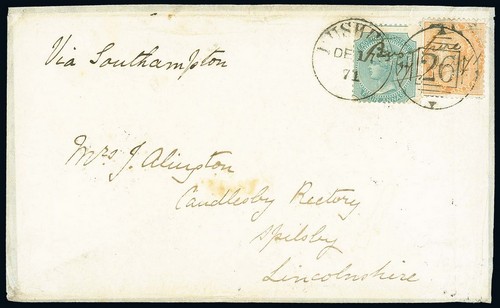 Via Southampton
DE 1
71
26
Mrs J. Alington
Candlesby Rectory
Spilsby
Lincolnshire